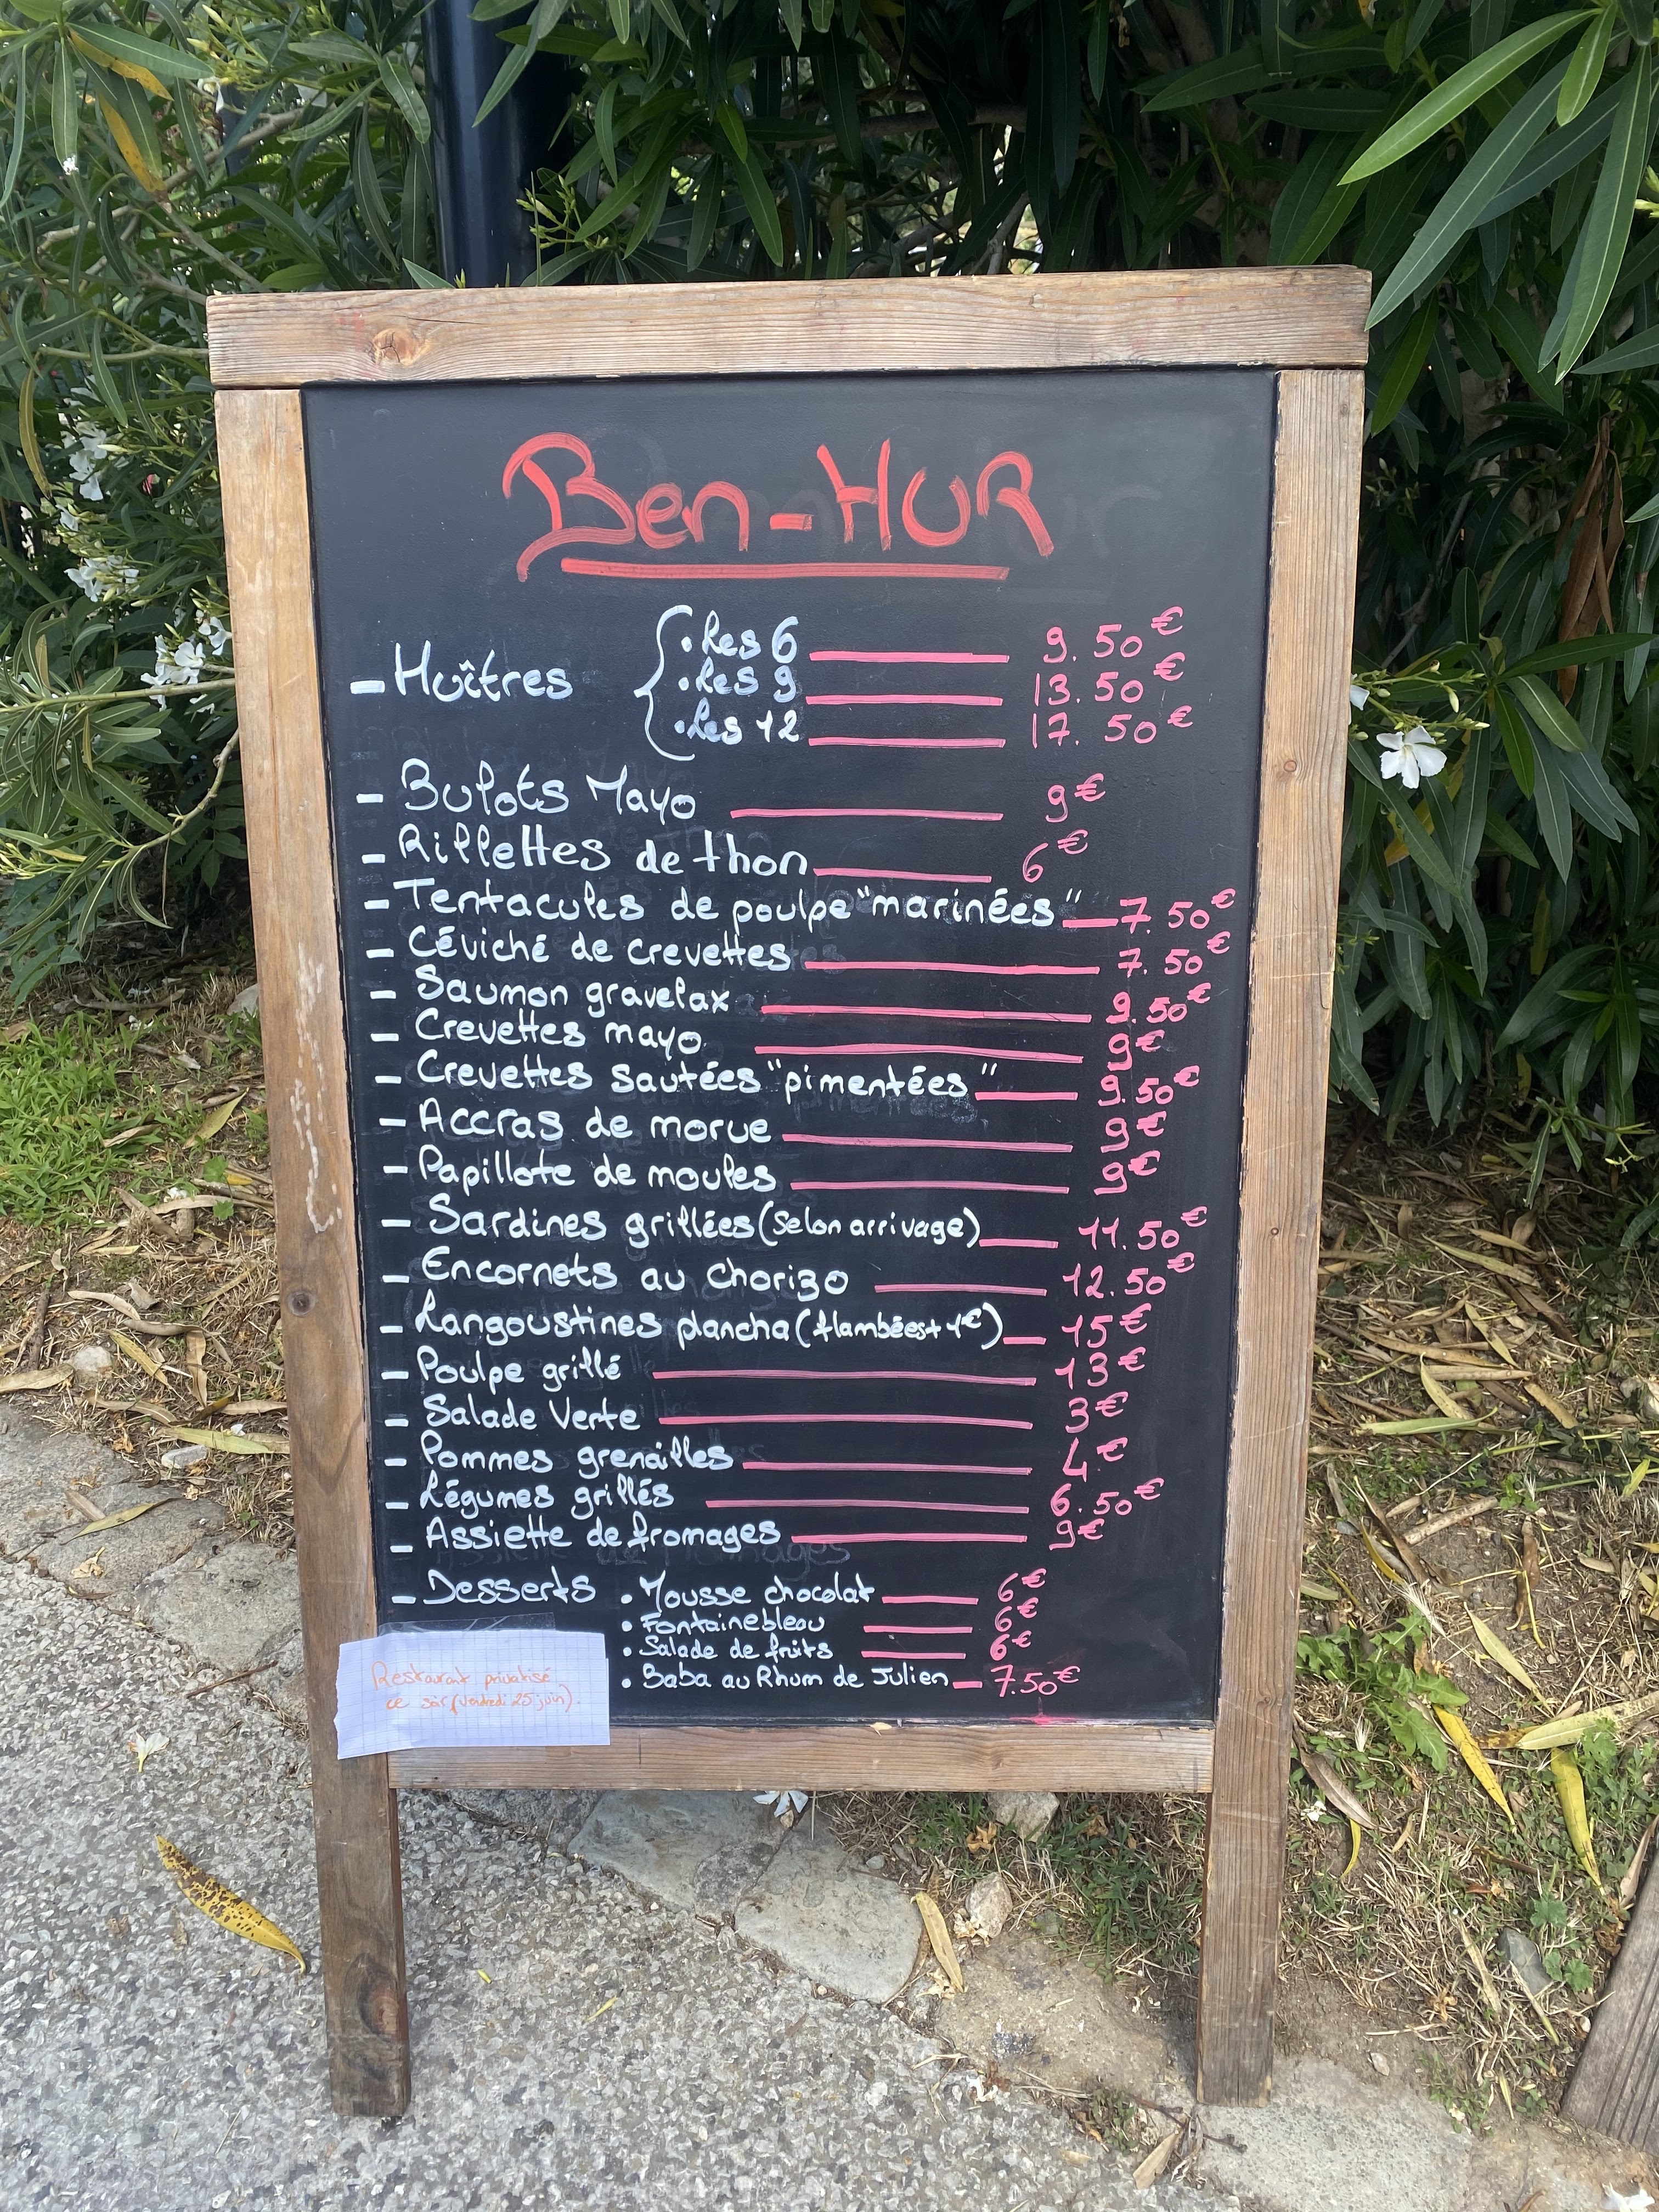 Ben-HUR
- Huîtres
. Les 6 9.50€
. Les 9 13.50€
. Les 12 17.50€
- Bulots Mayo 9€
- Rillettes de thon 6€
- Tentacules de poulpe "marinées" 7.50€
- Céviché de crevettes 7.50€
- Saumon gravelax 9.50€
- Crevettes mayo 9€
- Crevettes sautées "pimentées" 9.50€
- Accras de morue 9€
- Papillote de moules 9€
- Sardines grillées (selon arrivage) 11.50€
- Encornets au chorizo 12.50€
- Langoustines plancha (flambées + 1€) 15€
- Poulpe grillé 13€
- Salade verte 3€
- Pommes grenailles 4€
- Légumes grillés 6.50€
- Assiette de fromages 9€
- Desserts . Mousse chocolat 6€
. Fontainebleau 6€
. Salade de fruits 6€
. Baba au Rhum de Julien 7.50€
Restaurant privatisé
ce soir (vendredi 25 juin).